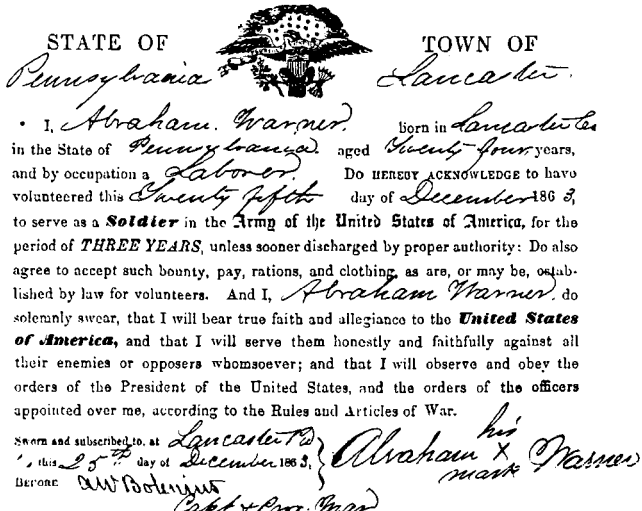 STATE OF TOWN OF
Pennsylvania Lancaster.
I, Abraham. Warner. born in Lancaster Co
in the State of Pennsylvania. aged Twenty four years,
and by occupation a Laborer. Do HEREBY ACKNOWLEDGE to have
volunteered this Twenty fifth day of December 1863,
to serve as a Soldier in the Army of the United States of America, for the
period of THREE YEARS, unless sooner discharged by proper authority: Do also
agree to accept such bounty, pay, rations, and clothing, as are, or may be, estab-
lished by law for volunteers. And I, Abraham Warner. do
solemnly swear, that I will bear true faith and allegiance to the United States
of America, and that I will serve them honestly and faithfully against all
their enemies or opposers whomsoever; and that I will observe and obey the
orders of the President of the United States, and the orders of the officers
appointed over me, according to the Rules and Articles of War.
Sworn and subscribed to, at Lancaster Pa
this 25th day of December 1863,
BEFORE A W Bolenius
Capt & Pro. Mar
his
Abraham X Warner
mark